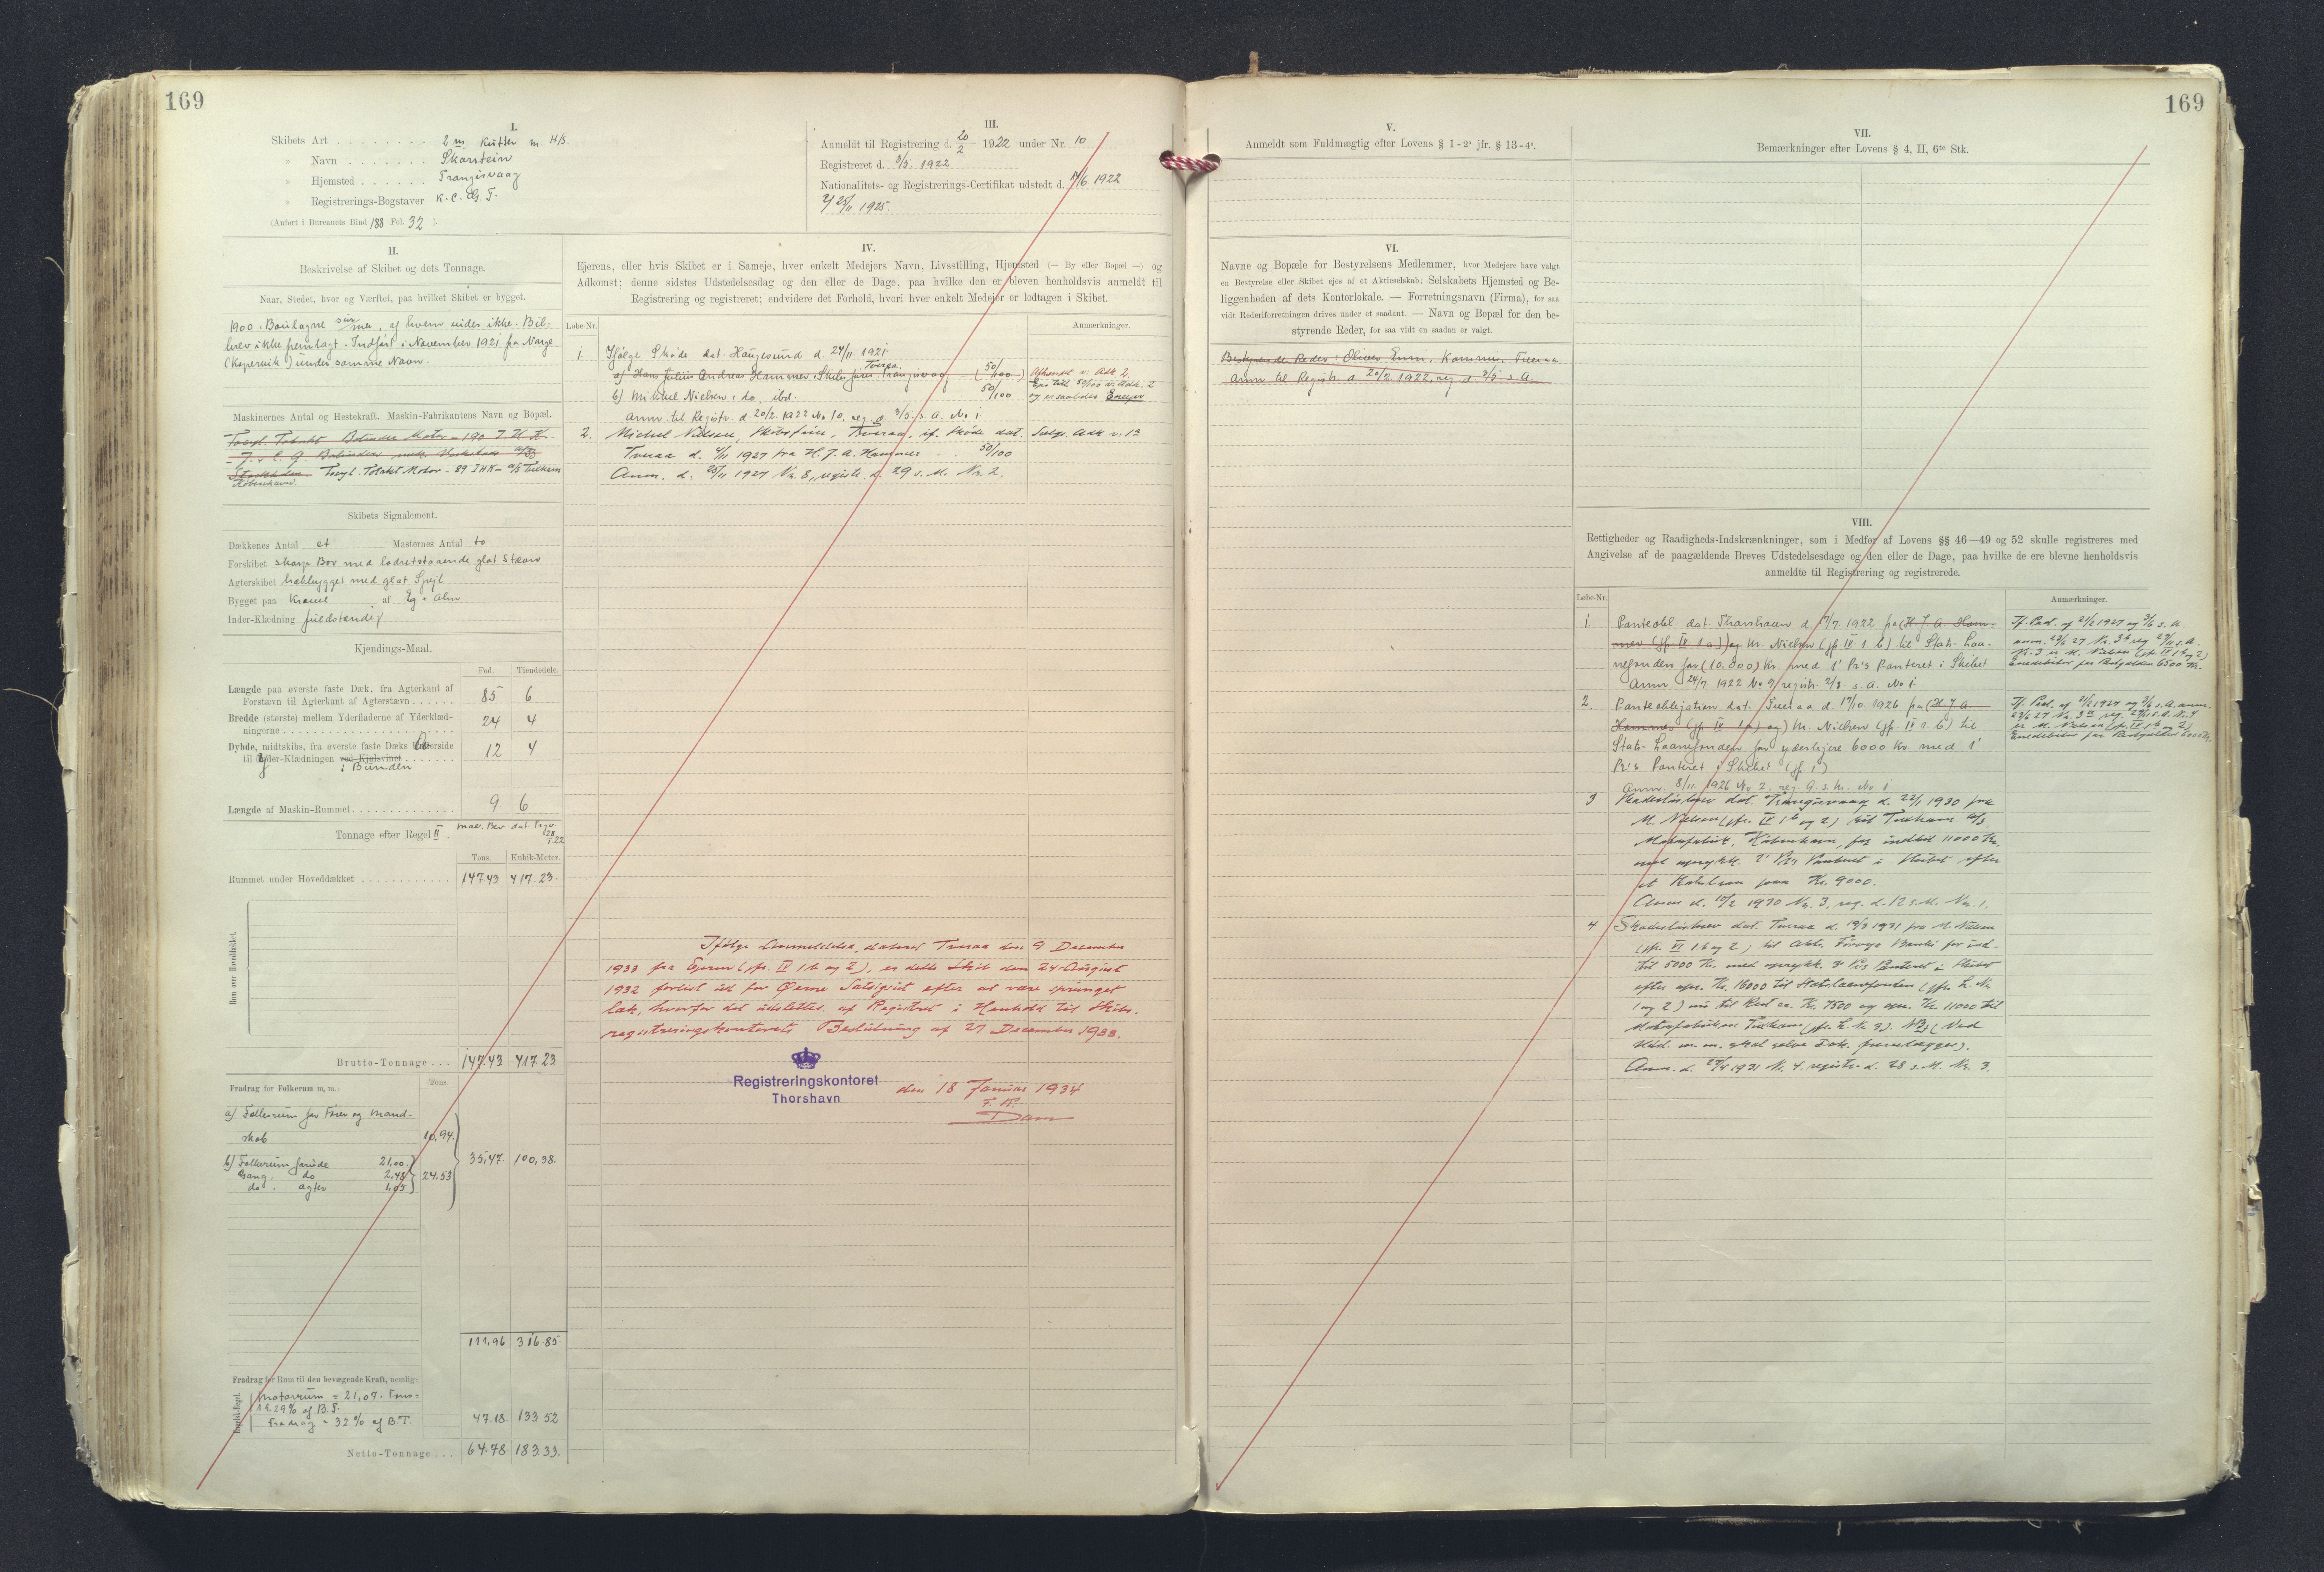 169
I.
Skibets Art . . . . . . . . 2 m Kutter m. H/S.
» Navn . . . . . . . Skarstein
» Hjemsted . . . . . . Trangisvaag
» Registrerings-Bogstaver K.C.G.T.
(Anført i Bureauets Bind 188 Fol. 32 ).
III.
Anmeldt til Registrering d. 20/2 1922 under Nr. 10
Registreret d. 3/5. 1922
Nationalitets- og Registrerings-Certifikat udstedt d. 14/6 1922
25/11 1925.
II.
Beskrivelse af Skibet og dets Tonnage.
Naar, Stedet, hvor og Værftet, paa hvilket Skibet er bygget.
1900. Boulogne sur mer, af hvem vides ikke. Bil-
brev ikke fremlagt. Indført i November 1921 fra Norge
(Kopervik) under samme Navn.
Maskinernes Antal og Hestekraft. Maskin-Fabrikantens Navn og Bopæl.
Bolinder Motor - 190 I H K.
Stockholm. Tocyl. Totakt Motor - 89 IHK - A/S Tuxham
København.
Skibets Signalement.
Dækkenes Antal et Masternes Antal to
Forskibet skarp Bov med lodretstaaende glat Stævn
Agterskibet hækbygget med glat Spejl
Bygget paa Kravel af Eg & Alm
Inder-Klædning fuldstændig
Kjendings-Maal.
Fod. Tiendedele.
Længde paa øverste faste Dæk, fra Agterkant af
Forstævn til Agterkant af Agterstævn . . . . . . 85 6
Bredde (største) mellem Yderfladerne af Yderklæd-
ningerne . . . . . . . . . . . . . . . . . . . . 24 4
Dybde, midtskibs, fra øverste faste Dæks Overside
til Yder-Klædningen ved Kjølsvinet . . . . . . . 12 4
i Bunden
Længde af Maskin-Rummet . . . . . . . . . . . . . 9 6
Tonnage efter Regel II.
Tons. Kubik-Meter.
Rummet under Hoveddækket . . . . . . . . . . . . 147.43 417.23.
Rum over Hoveddækket.
Brutto-Tonnage . . . 147.43 417.23
Fradrag for Folkerum m. m.: Tons.
a) Folkerum for Fører og Mand-
skab 10,94.
b) Folkerum forude 21,00. 35,47. 100,38.
Gang. do 2,48 24,53
do. agter 1,05
111,96 316.85
Fradrag for Rum til den bevægende Kraft, nemlig:
Motorrum = 21,07. Tons =
14.29% af B.T.
Fradrag = 32 % af B.T. 47.18. 133 52
Netto-Tonnage . . . 64.78 183.33.
IV.
Ejerens, eller hvis Skibet er i Sameje, hver enkelt Medejers Navn, Livsstilling, Hjemsted (— By eller Bopæl —) og
Adkomst; denne sidstes Udstedelsesdag og den eller de Dage, paa hvilke den er bleven henholdsvis anmeldt til
Registrering og registreret; endvidere det Forhold, hvori hver enkelt Medejer er lodtagen i Skibet.
Løbe-Nr. Anmærkninger.
1. Ifølge Skøde dat. Haugesund d. 24/11. 1921.
Tveraa.
a) Hans Julius Andreas Hammer, Skibsfører Trangisvaag (50/100) Afhændet v. Adk 2.
b) Michael Nielsen, do, ibd. 50/100 50/100 v. Adk. 2
og er saaledes Eneejer
Anm. til Registr. d. 20/2. 1922 No 10, reg. d. 3/5. s. A. No 1.
2. Michael Nielsen, Skibsfører, Tveraa, if. Skøde dat. Solgt. Adk v. 1a
Tveraa d. 4/11 1927 fra H. J. A. Hammer . . 50/100
Anm. d. 25/11 1927 Nr. 8, registr. d. 29 s. M. Nr. 2.
Ifølge Anmeldelse, dateret Tveraa den 9 December
1933 fra Ejeren (jfr. IV 1b og 2), er dette Skib den 24 August
1932 forlist ud for Øerne Satsigsut efter at være sprunget
læk, hvorfor det udslettes af Registret i Henhold til Skibs-
registreringskontorets Beslutning af 27 December 1933.
Registreringskontoret
Thorshavn
den 18 Januar 1934
Dam
169
V.
Anmeldt som Fuldmægtig efter Lovens § 1-2° jfr. § 13-4°.
VI.
Navne og Bopæle for Bestyrelsens Medlemmer, hvor Medejere have valgt
en Bestyrelse eller Skibet ejes af et Aktieselskab; Selskabets Hjemsted og Be-
liggenheden af dets Kontorlokale. — Forretningsnavn (Firma), for saa
vidt Rederiforretningen drives under et saadant. — Navn og Bopæl for den be-
styrende Reder, for saa vidt en saadan er valgt.
Bestyrende Reder: Oliver Enni, Kommis, Tveraa
Anm til Registr. d 20/2. 1922, reg d 3/5 s A.
VII.
Bemærkninger efter Lovens § 4, II, 6te Stk.
VIII.
Rettigheder og Raadigheds-Indskrænkninger, som i Medfør af Lovens §§ 46—49 og 52 skulle registreres med
Angivelse af de paagældende Breves Udstedelsesdage og den eller de Dage, paa hvilke de ere blevne henholdsvis
anmeldte til Registrering og registrerede.
Løbe-Nr. Anmærkninger.
1 Panteobl. dat. Thorshavn d 17/7 1922 fra (H J. A. Ham-
mer (jfr. IV 1 a)) og M. Nielsen (jfr IV 1 b) til Stats-Laa-
nefonden for (10.000) Kr med 1' Pr's Panteret i Skibet
Anm 24/7 1922 No 9, registr. 2/8. s. A. No 1.
2. Panteobligation dat. Tveraa d. 19/10. 1926 fra (H J A
Hammer (jfr IV 1 a) og) M. Nielsen (jfr. IV 1. b) til
Stats-Laanefonden for yderligere 6000 Kr med 1'
Pr's Panteret i Skibet (jfr. 1)
Anm. 8/11 1926 No 2, reg. 9. s. M. No 1
3 Skadesløsbrev dat. Trangisvaag d. 22/1 1930 fra
M. Nielsen (jfr. IV 1b og 2) til Tuxham A/S
Motorfabrik, København, for indtil 11000 Kr.
med oprykk. 2' Pr's Panteret i Skibet efter
et Statslaan paa Kr. 9000.
Anm. d. 10/2 1930 Nr. 3, reg. d. 12 s. M. Nr. 1.
4 Skadesløsbrev dat. Tveraa d. 19/3 1931 fra M. Nielsen
(jfr. IV 1b og 2) til Akts. Føroya Banki for ind-
til 5000 Kr. med oprykk. 3' Pr's Panteret i Skibet
efter opr. Kr. 16000 til Statslaanefonden (jfr. L. Nr
1 og 2) nu til Rest ca. Kr. 7500 og opr. Kr. 11000 til
Motorfabriken Tuxham (jfr. L. Nr 3). NB (Ved
Udsl. m. m. skal selve Dok. fremlægges).
Anm. d. 27/4 1931 Nr. 4. registr. d. 28 s. M. Nr. 3.